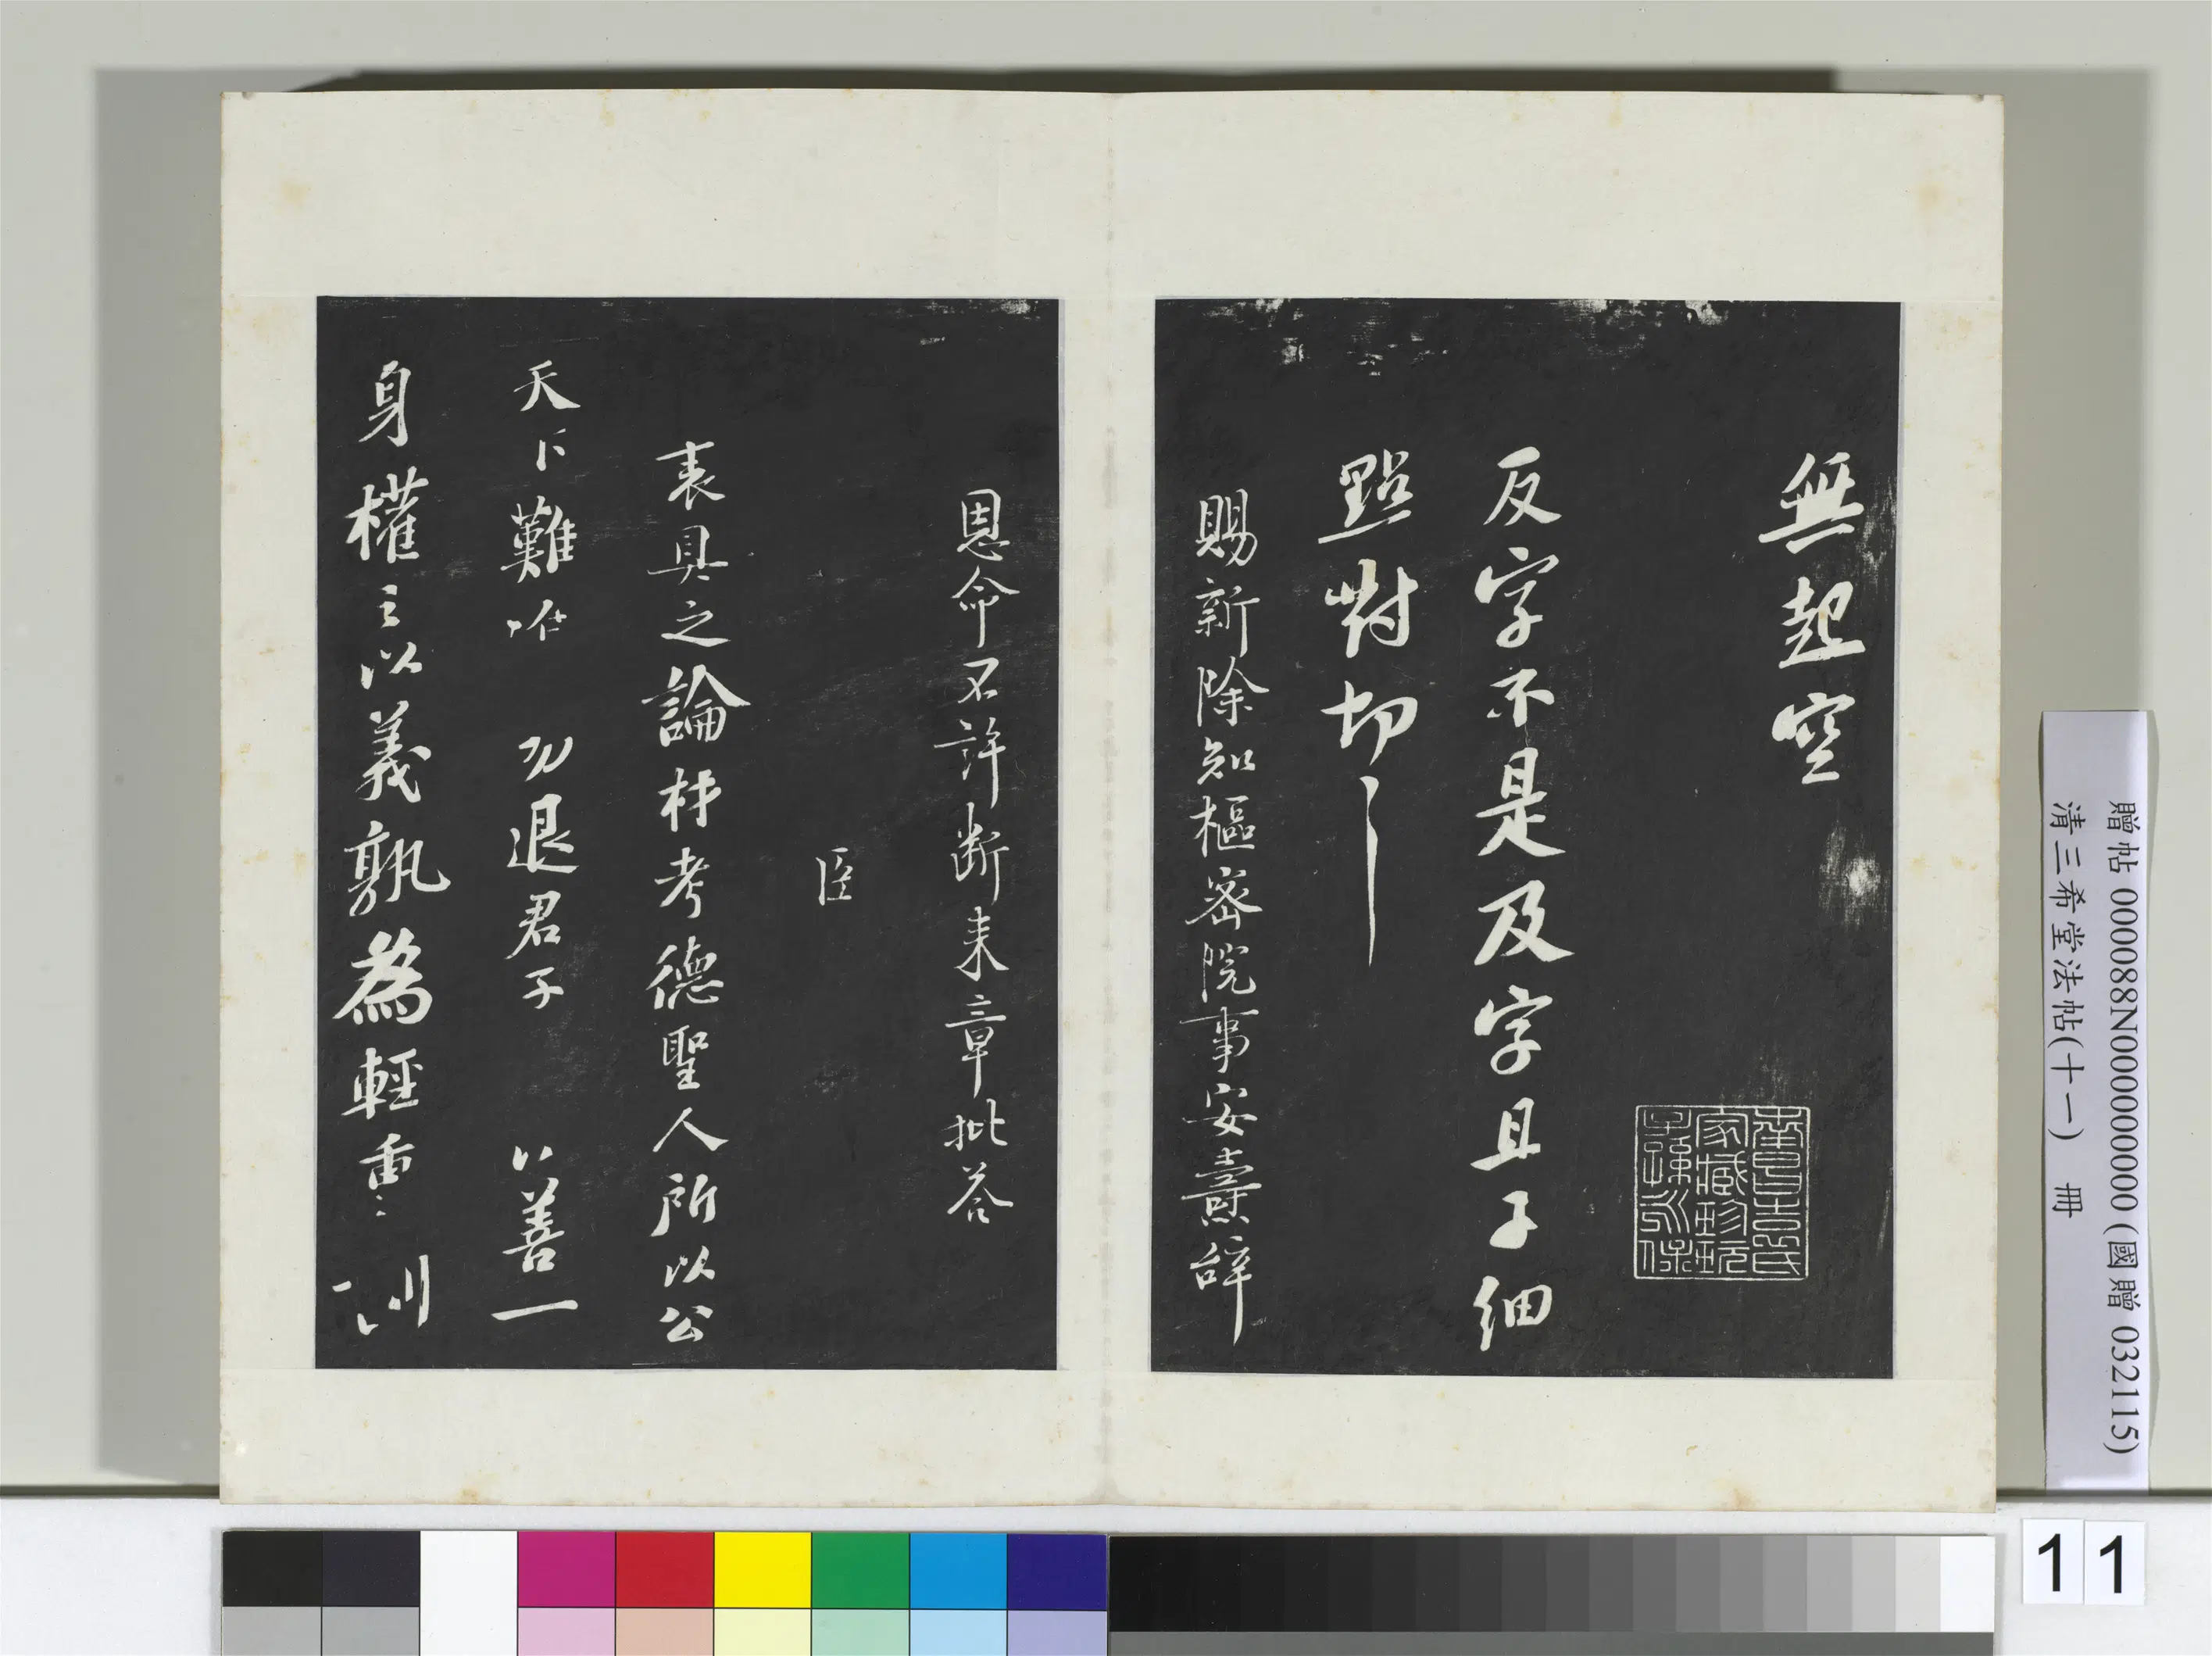 無起空
反字不是及字且子細
點對切〻
賜新除知樞密院事安燾辭
恩命不許斷来章批答
臣
表具之論材考德聖人所以公
天下難 退君子 以善一
身權之以義孰為輕重
家藏珍玩
子孫永保
贈帖 000088N000000000 (國贈 032115)
清三希堂法帖(十一) 冊
11